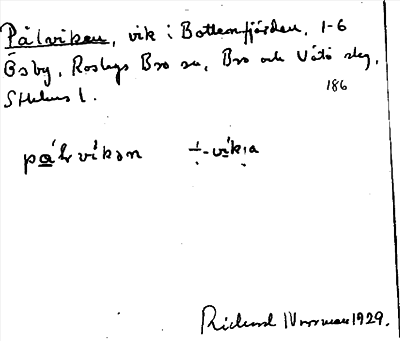 Pålviken, vik i Bottenfjärden, 1-6
Ösby, Roslags Bro sn, Bro och Vätö skg,
Sthlms l. 186
pålvikən ÷-vikıa
Rickard Norrman 1929.